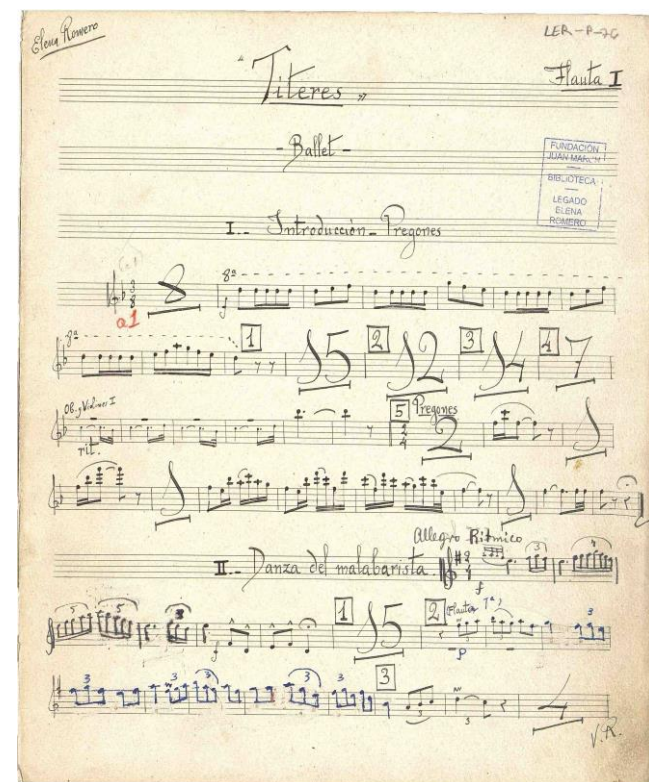 Elena Romero
LER-P-26
"Titeres"
Flauta I
- Ballet -
FUNDACIÓN
JUAN MARCH
BIBLIOTECA
LEGADO
ELENA
ROMERO
I.- Introducción - Pregones
8ª
3
8
8
f
a1
8ª
1
15
2
12
3
14
4
7
Ob. y Violines I
rit.
5
Pregones
2
4
2
1
1
1
Allegro Ritmico
II.- Danza del malabarista.
2
4
f
3
5
5
3
f
1
15
2
(Flauta 1ª)
p
3
3
3
3
3
3
3
3
3
4
V.R.